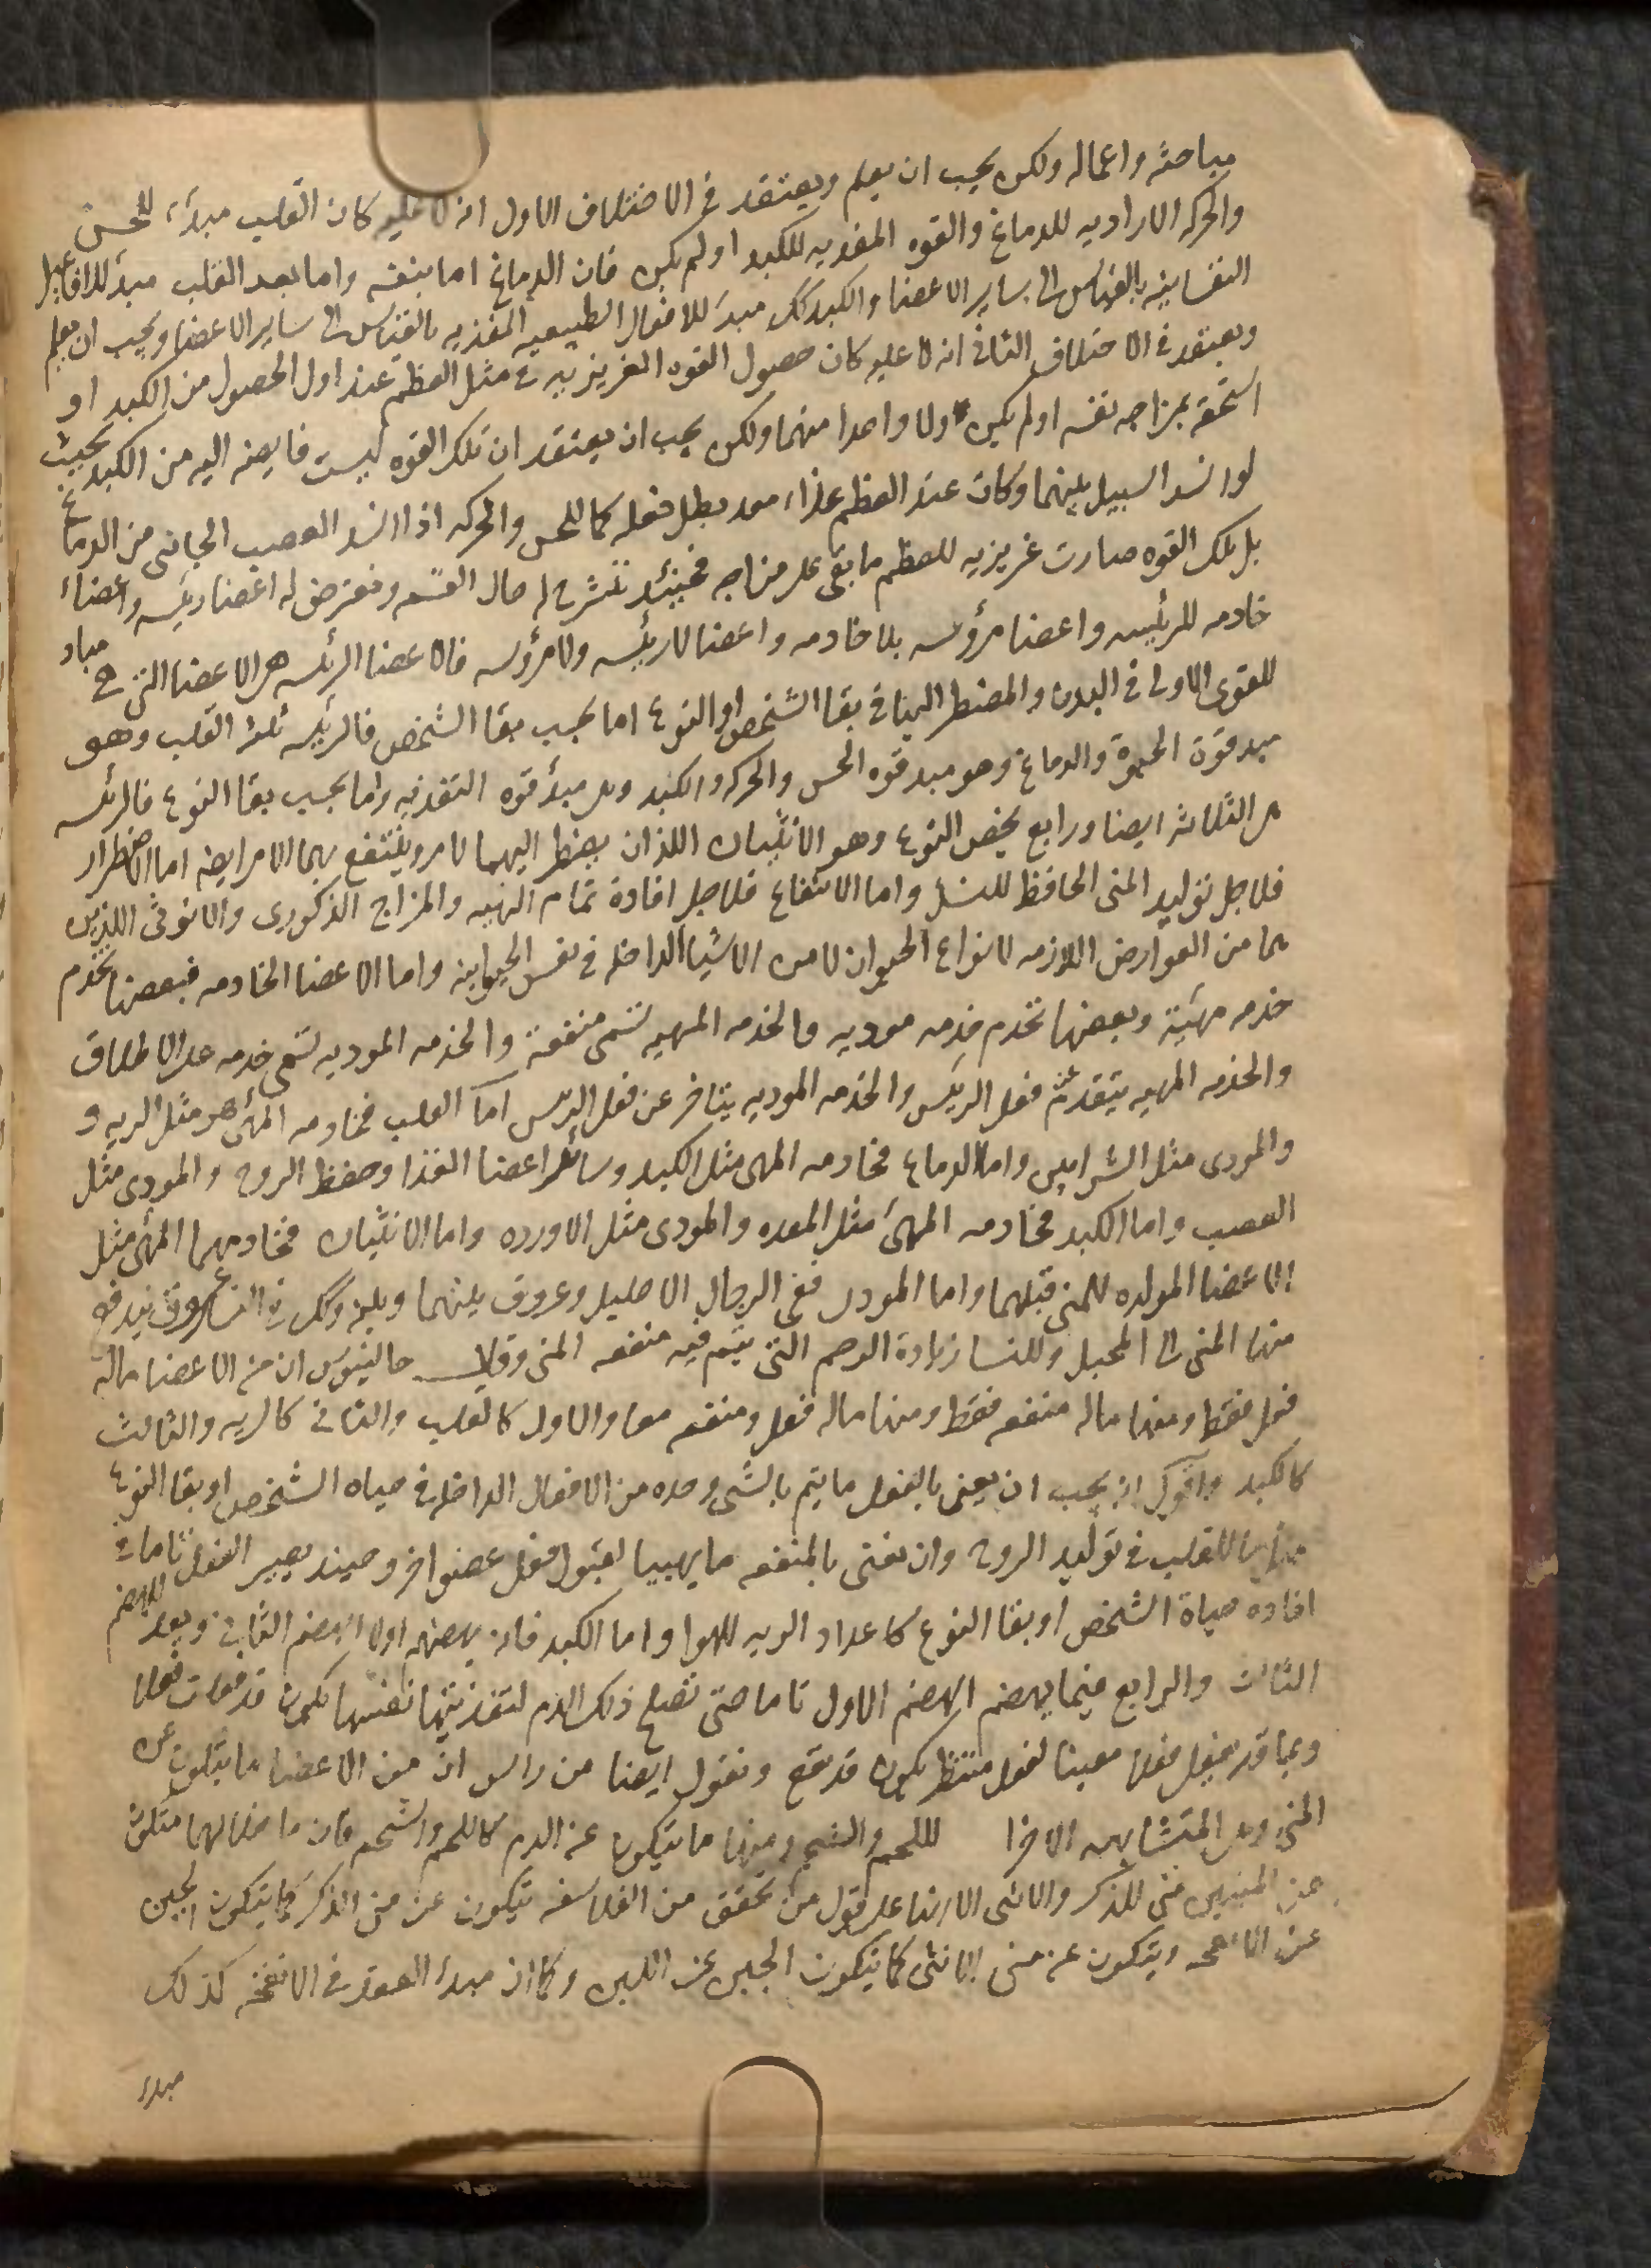 مباحثه واعماله ولكن يجب ان يعلم ويعتقد فى الاختلاف الاول انه لا عليه كان القلب مبدأ للحس
والحركه الاراديه للدماغ والقوه المغذيه للكبد او لم يكن فان الدماغ اما بنفسه واما بعد القلب مبدأ للافاعيل
النفسانيه بالقياس الى ساير الاعضا والكبد كك مبدء للافعال الطبيعيه المغذيه بالقياس الى ساير الاعضا ويجب ان يعلم
ويعتقد فى الاختلاف الثانى انه لا عليه كان حصول القوه الغريزيه فى مثل العظم عند اول الحصول من الكبد او
استحقه بمزاجه نفسه او لم يكن ولا واحدا منهما ولكن يجب ان يعتقد ان تلك القوه ليست فايضه اليه من الكبد بحيث
لو انسد السبيل بينهما وكان عند العظم غذاء معد بطل فعله كما للحس والحركه اذا انسد العصب الجائى من الدماغ
بل تلك القوه صارت غريزيه للعظم ما بقى على مزاجه فحينئذ تنشرح له حال القسمه ونفرض له اعضا رئيسه واعضاء
خادمه للرئيسه واعضا مرؤسه بلا خادمه واعضا لا رئيسه ولا مرؤسه فالاعضا الرئيسه هى الاعضا التى هى مباد
للقوى الاولى فى البدن والمضطر اليها فى بقا الشخص او النوع اما بحسب بقا الشخص فالرئيسه ثلثه القلب وهو
مبد قوة الحيوة والدماغ وهو مبد قوه الحس والحركه والكبد وهى مبدأ قوه التغذيه واما بحسب بقا النوع فالرئسه
هى الثلاثه ايضا ورابع يخص النوع وهو الانثيان اللذان يضطر اليهما لامر وينتفع بهما لامر ايضا اما الاضطرار
فلاجل توليد المنى الحافظ للنسل واما الانتفاع فلاجل افادة تمام الهيه والمزاج الذكورى والانوثى اللذين
هما من العوارض اللازمه لانواع الحيوان لا من الاشيا الداخله فى نفس الحيوانيه واما الاعضا الخادمه فبعضها تخدم
خدمه مهيئة وبعضها تخدم خدمه موديه والخدمه المهيه تسمى منفعة والخدمه الموديه تسمى خدمه على الاطلاق
والخدمه المهيه يتقدم فعل الرئيس والخدمه الموديه يتاخر عن فعل الرئيس اما القلب فخادمه المهئ هو مثل الريه و
والمودى مثل الشرايين واما الدماغ فخادمه المهى مثل الكبد وسائر اعضا الغذا وحفظ الروح والمودى مثل
العصب واما الكبد فخادمه المهئ مثل المعده والمودى مثل الاورده واما الانثيان فخادمهما المهئ مثل
الاعضا المولده للمنى قبلهما واما المودى ففى الرجال الاحليل وعروق بينهما وبينه وكك فى النسا عروق يندفع
منها المنى الى المحبل وللنسا زيادة الرحم التى يتم فيه منفعه المنى وقال جالينوس ان من الاعضا ماله
فعل فقط ومنها ماله منفعه فقط ومنها ماله فعل ومنفعه معا والاول كالقلب والثانى كالريه والثالث
كالكبد واقول انه يجب ان يعنى بالفعل ما يتم بالشى وحده من الافعال الداخله فى حياه الشخص او بقا النوع
مثل ما للقلب فى توليد الروح وان نعنى بالمنفعه ما يهييا لقبول فعل عضو اخر وحينئد يصير الفعل تاما فى
افاده حياة الشخص او بقا النوع كاعداد الريه للهوا واما الكبد فانه يهضم اولا الهضم الثانى ويعد للهضم
الثالث والرابع فيما يهضم الهضم الاول تاما حتى تصلح ذلك الدم لتغذيتها نفسها يكون قد فعلت فعلا
وبما قد يفعل فعلا معينا لفعل منتظر يكون قد نفع ونقول ايضا من راس ان من الاعضا ما يتكون عن
المنى وهى المتشابهه الاجزا للحم والشحم ومنها ما يتكون عن الدم كاللحم والشحم فان ما خلا لهما متكون
عن المنيين منى الذكر والانثى الا انها على قول من تحقق من الفلاسفه يتكون عن منى الذكر كما يتكون الجبن
عن الانفحه ويتكون عن منى الانثى كما يتكون الجبن عن اللبن وكما ان مبدأ العقد فى الانفحه كذلك
مبدء